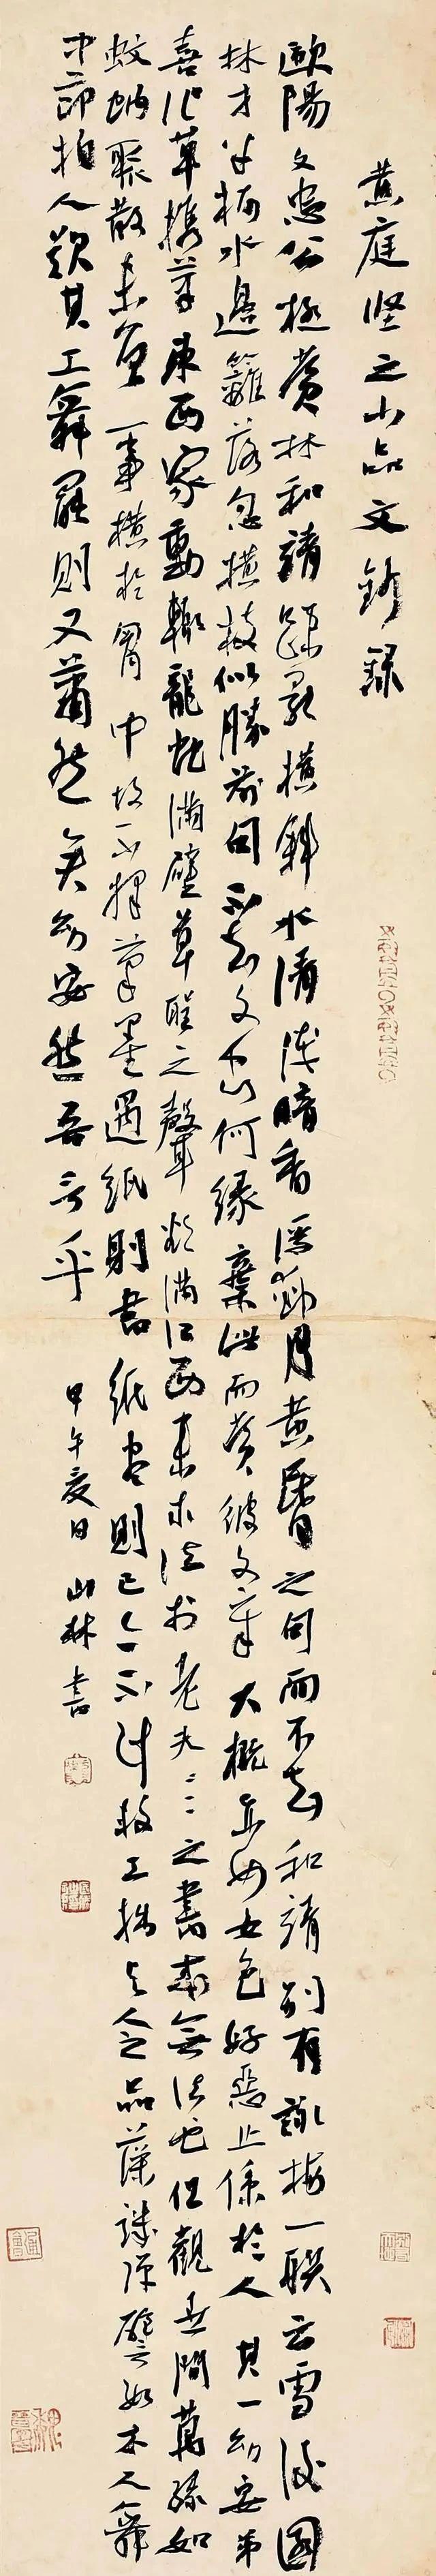 黄庭坚之小品文鈔録
歐陽文忠公極賞林和靖疎影横斜水清淺暗香浮動月黄昏之句而不知和靖别有詠梅一聯云雪後園
林才半水邊籬落忽横枝似勝前句不知文忠何緣棄此而賞彼文章大概亦如女色好惡止係於人其一幼安弟
喜作草携筆東西家動輒龍蛇滿壁草聖之聲欲滿江西来求法於老夫〻〻之書本無法也但觀世間萬緣如
蚊蚋聚散未嘗一事横於胷中故不擇筆墨遇紙則書紙盡則已亦不計較工拙與人之品藻譏彈譬如木人舞
中節拍人歎其工舞罷則又蕭然矣幼安然吾言乎
甲午夏日山林書